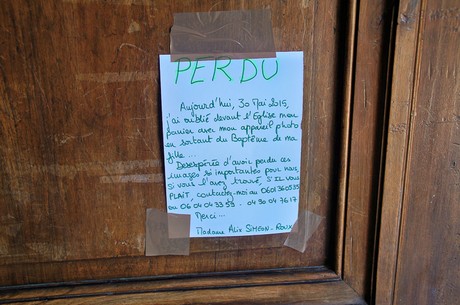 PERDU
Aujourd'hui, 30 Mai 2015,
j'ai oublié devant l'Eglise mon
panier avec mon appareil photo
en sortant du Baptême de ma
fille...
Desespérée d'avoir perdu ces
images si importantes pour nous,
si vous l'avez trouvé, S'IL VOUS
PLAIT, contactez-moi au 0601360535
ou 06 04 04 33 59 - 04 90 04 76 17
Merci...
Madame Alix SIMEON-ROUX